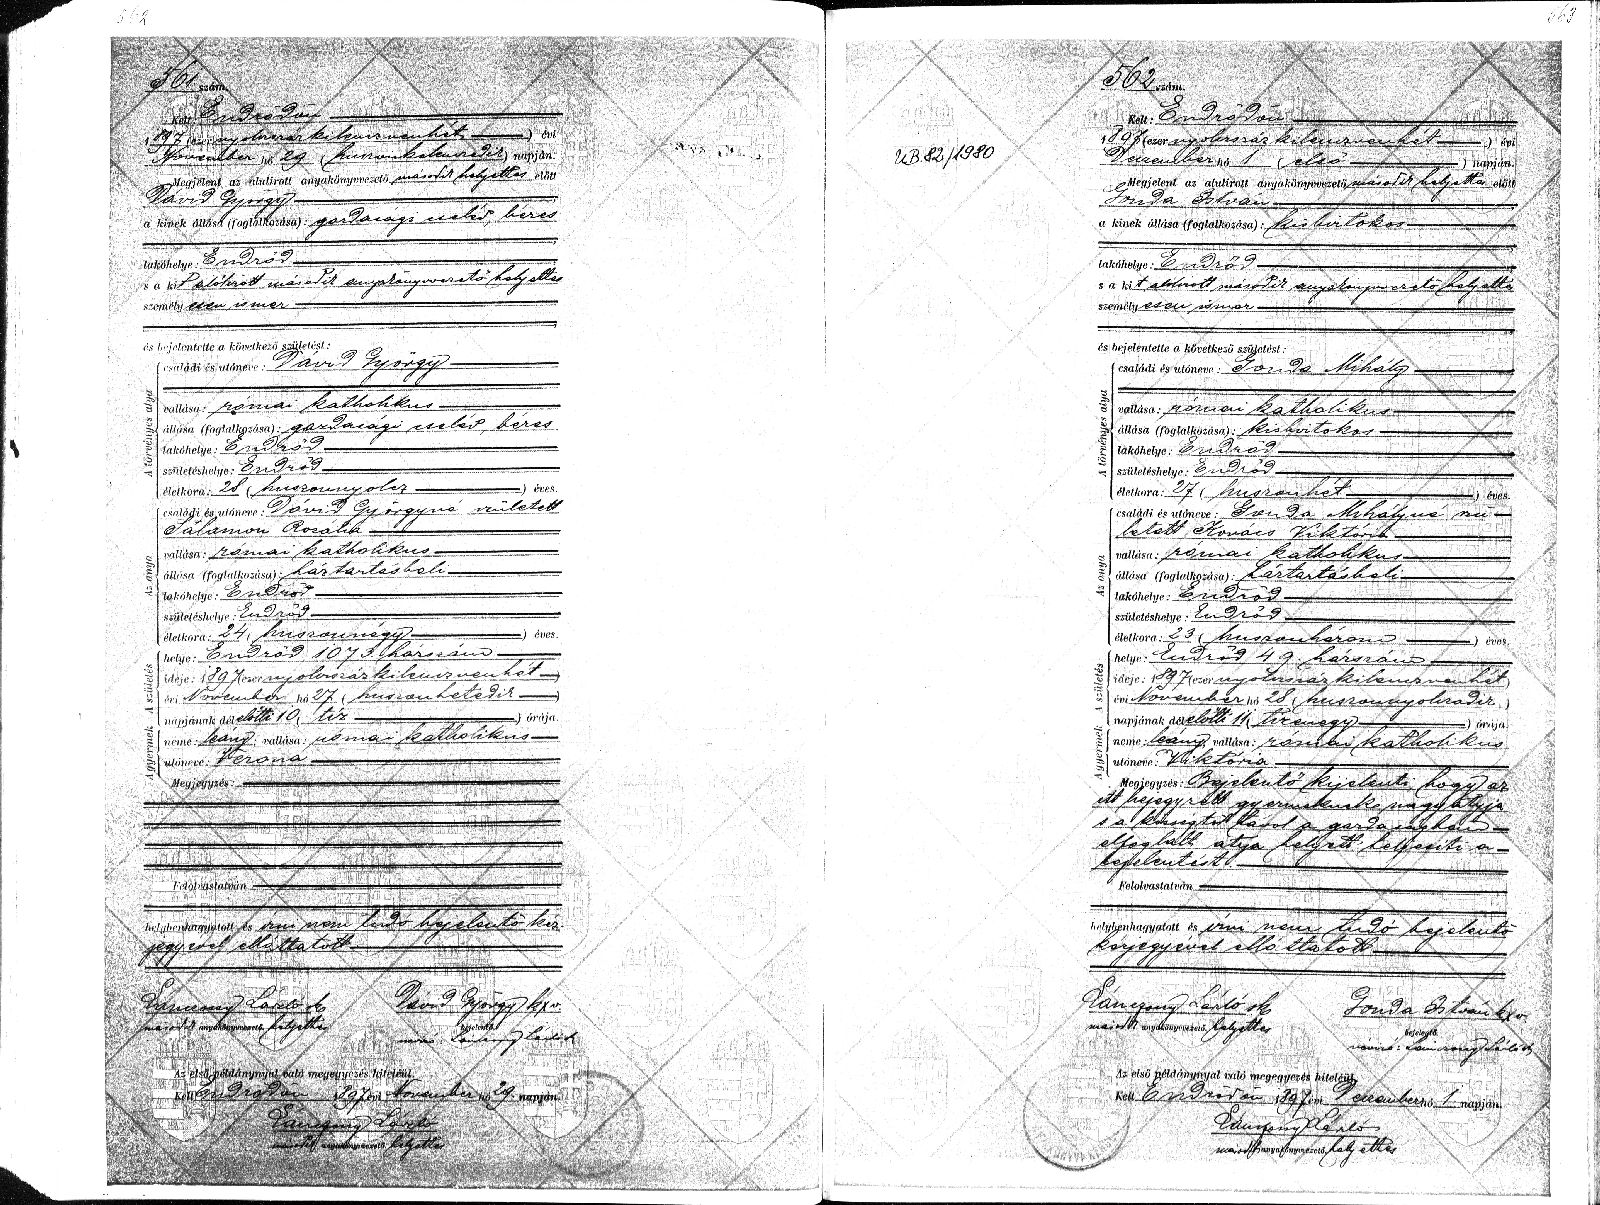 562
561 szám.
Kelt Endrődön
1897 (ezernyolcszázkilencvenhét) évi
November hó 29 (huszonkilencedik) napján.
Megjelent az alulirott anyakönyvvezető második helyettes előtt
Dávid György
a kinek állása (foglalkozása): gazdasági cseléd, béres
lakóhelye: Endrőd
s a kit alólirott második anyakönyvvezető helyettes
személyesen ismer
és bejelentette a következő születést:
A törvényes atya
családi és utóneve: Dávid György
vallása: római katholikus
állása (foglalkozása): gazdasági cseléd, béres
lakóhelye: Endrőd
születéshelye: Endrőd
életkora: 28 (huszonnyolcz) éves.
Az anya
családi és utóneve: Dávid Györgyné született
Salamon Rozália
vallása: római katholikus
állása (foglalkozása): háztartásbeli
lakóhelye: Endrőd
születéshelye: Endrőd
életkora: 24 (huszonnégy) éves.
A születés
helye: Endrőd 1073 házszám
ideje: 1897 (ezernyolcszázkilencvenhét)
évi November hó 27 (huszonhetedik)
napjának délelőtti 10 (tíz) órája.
A gyermek
neme: leány; vallása: római katholikus
utóneve: Verona
Megjegyzés:
Felolvastatván
helybenhagyatott és irni nem tudó bejelentő kéz-
jegyével elláttatott
Lánczony László
második anyakönyvvezető helyettes
Dávid György kxv.
bejelentő
Az első példánynyal való megegyezés hiteléül.
Kelt Endrődön 1897 évi November hó 29. napján.
Lánczony László
második anyakönyvvezető helyettes
563
UB.82/1980
562 szám.
Kelt: Endrődön
1897 (ezernyolcszázkilencvenhét) évi
December hó 1 (első) napján.
Megjelent az alulirott anyakönyvvezető második helyettes előtt
Gonda István
a kinek állása (foglalkozása): kisbirtokos
lakóhelye: Endrőd
s a kit alólirott második anyakönyvvezető helyettes
személyesen ismer
és bejelentette a következő születést:
A törvényes atya
családi és utóneve: Gonda Mihály
vallása: római katholikus
állása (foglalkozása): kisbirtokos
lakóhelye: Endrőd
születéshelye: Endrőd
életkora: 27 (huszonhét) éves.
Az anya
családi és utóneve: Gonda Mihályné szü-
letett Kovács Viktória
vallása: római katholikus
állása (foglalkozása): háztartásbeli
lakóhelye: Endrőd
születéshelye: Endrőd
életkora: 23 (huszonhárom) éves.
A születés
helye: Endrőd 49 házszám
ideje: 1897 (ezernyolcszázkilencvenhét)
évi November hó 28 (huszonnyolcadik)
napjának délelőtti 11 (tizenegy) órája.
A gyermek
neme: leány; vallása: római katholikus
utóneve: Viktória
Megjegyzés: Bejelentő kijelenti, hogy az
itt bejegyzett gyermeknek nagyatyja
s a községtől távol a gazdaságban
elfoglalt atya helyett teljesiti a
bejelentést.
Felolvastatván
helybenhagyatott és irni nem tudó bejelentő
kézjegyével elláttatott
Lánczony László
második anyakönyvvezető helyettes
Gonda István kxv.
bejelentő
Az első példánynyal való megegyezés hiteléül.
Kelt Endrődön 1897 évi December hó 1 napján.
Lánczony László
második anyakönyvvezető helyettes